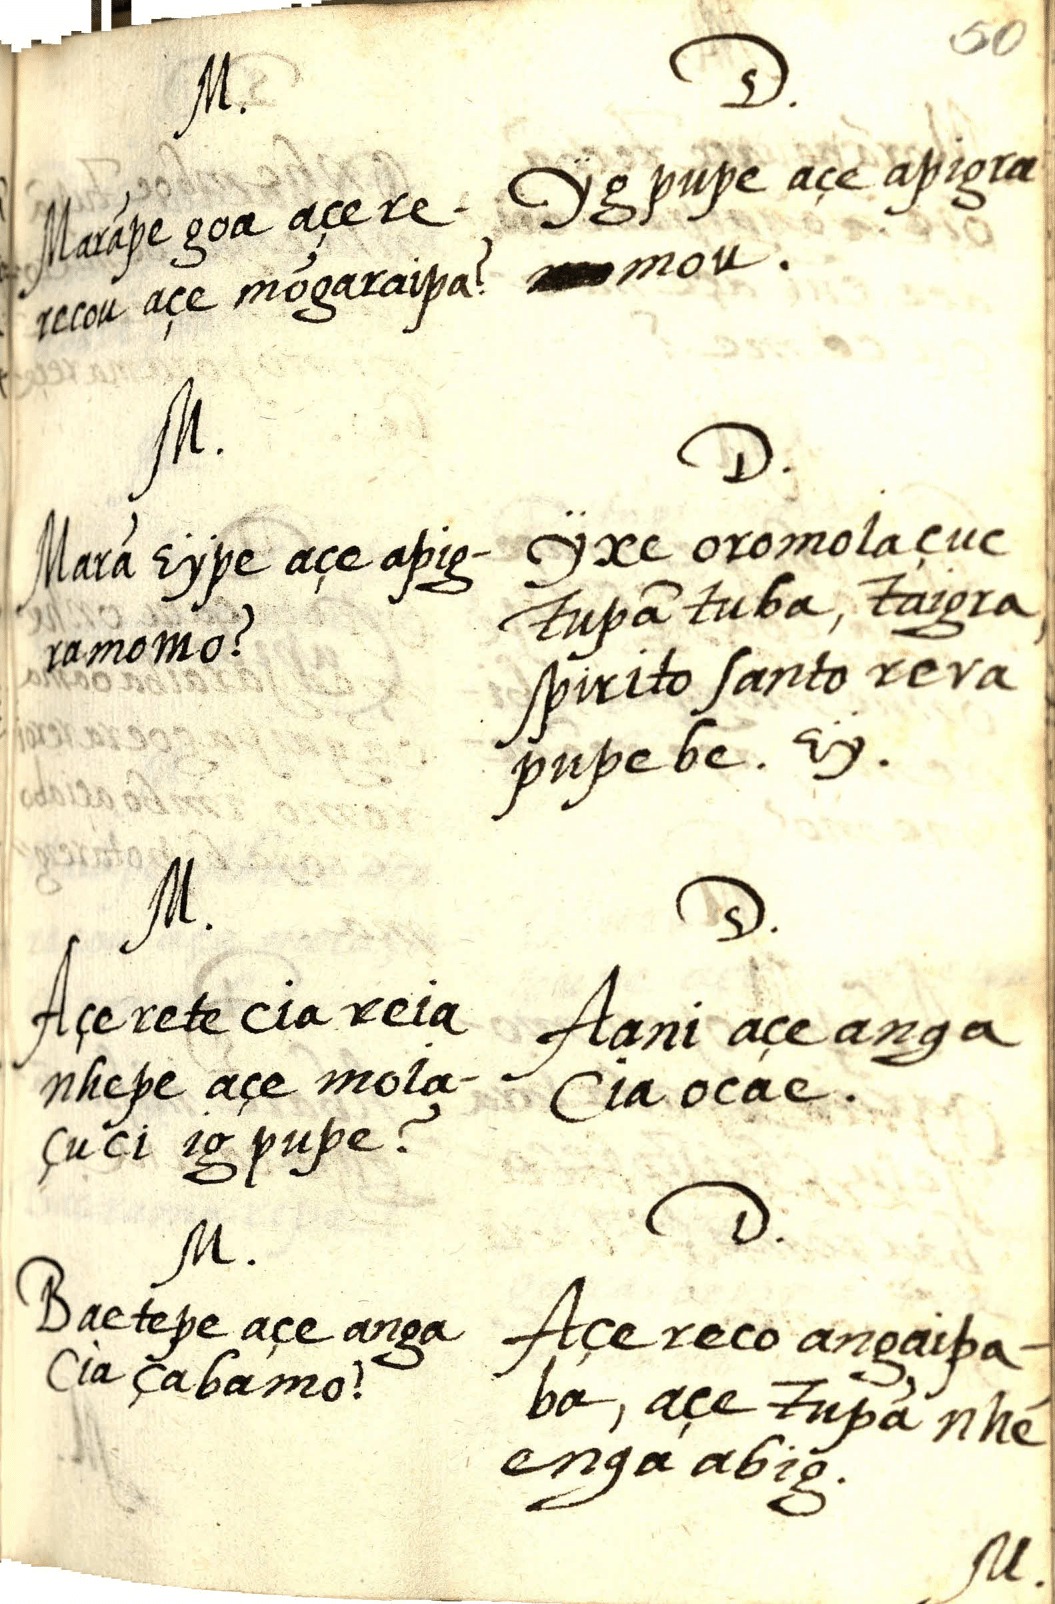 50
M.
Marãpe goa açe re-
recou açe mõgaraipa?
D.
Ÿg pupe açe apigra
mou.
M.
Marã eÿpe açe apig-
ramomo?
D.
Ÿxe oromolaçuc
tupã tuba, taigra,
spirito santo rera
pupe be. eÿ.
M.
Açe rete cia reia
nhepe açe mola-
çuci ig pupe?
D.
Aani açe anga
Cia ocae.
M.
Baetepe açe anga
Cia çabamo?
D.
Açe reco angaipa-
ba, açe tupã nhé
enga abig.
M.